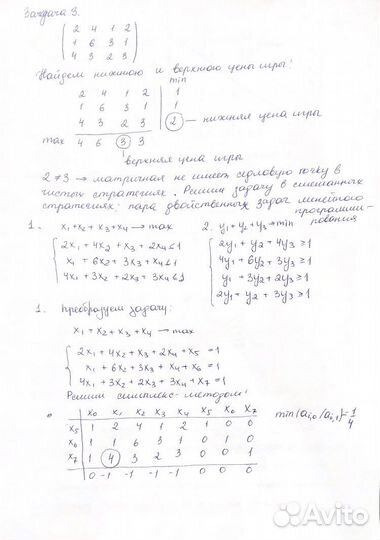 Задача 3.
2 4 1 2
1 6 3 1
4 3 2 3
Найдем нижнюю и верхнюю цены игры:
min
2 4 1 2 1
1 6 3 1 1
4 3 2 3 2 — нижняя цена игры
max 4 6 3 3
верхняя цена игры
2 ≠ 3 → матричная не имеет седловую точку в
чистых стратегиях. Решим задачу в смешанных
стратегиях: пара двойственных задач линейного
программирования
1. x₁+x₂+x₃+x₄ → max 2. y₁+y₂+y₃→min
2x₁+4x₂+x₃+2x₄≤1 2y₁+y₂+4y₃≥1
x₁+6x₂+3x₃+x₄≤1 4y₁+6y₂+3y₃≥1
4x₁+3x₂+2x₃+3x₄≤1 y₁+3y₂+2y₃≥1
2y₁+y₂+3y₃≥1
1. Преобразуем задачу:
x₁+x₂+x₃+x₄ → max
2x₁+4x₂+x₃+2x₄+x₅=1
x₁+6x₂+3x₃+x₄+x₆=1
4x₁+3x₂+2x₃+3x₄+x₇=1
Решим симплекс-методом:
0 x₀ x₁ x₂ x₃ x₄ x₅ x₆ x₇ min(aᵢ,₀/aᵢ,₁)=1/4
x₅ 1 2 4 1 2 1 0 0
x₆ 1 1 6 3 1 0 1 0
x₇ 1 4 3 2 3 0 0 1
0 -1 -1 -1 -1 0 0 0
Avito